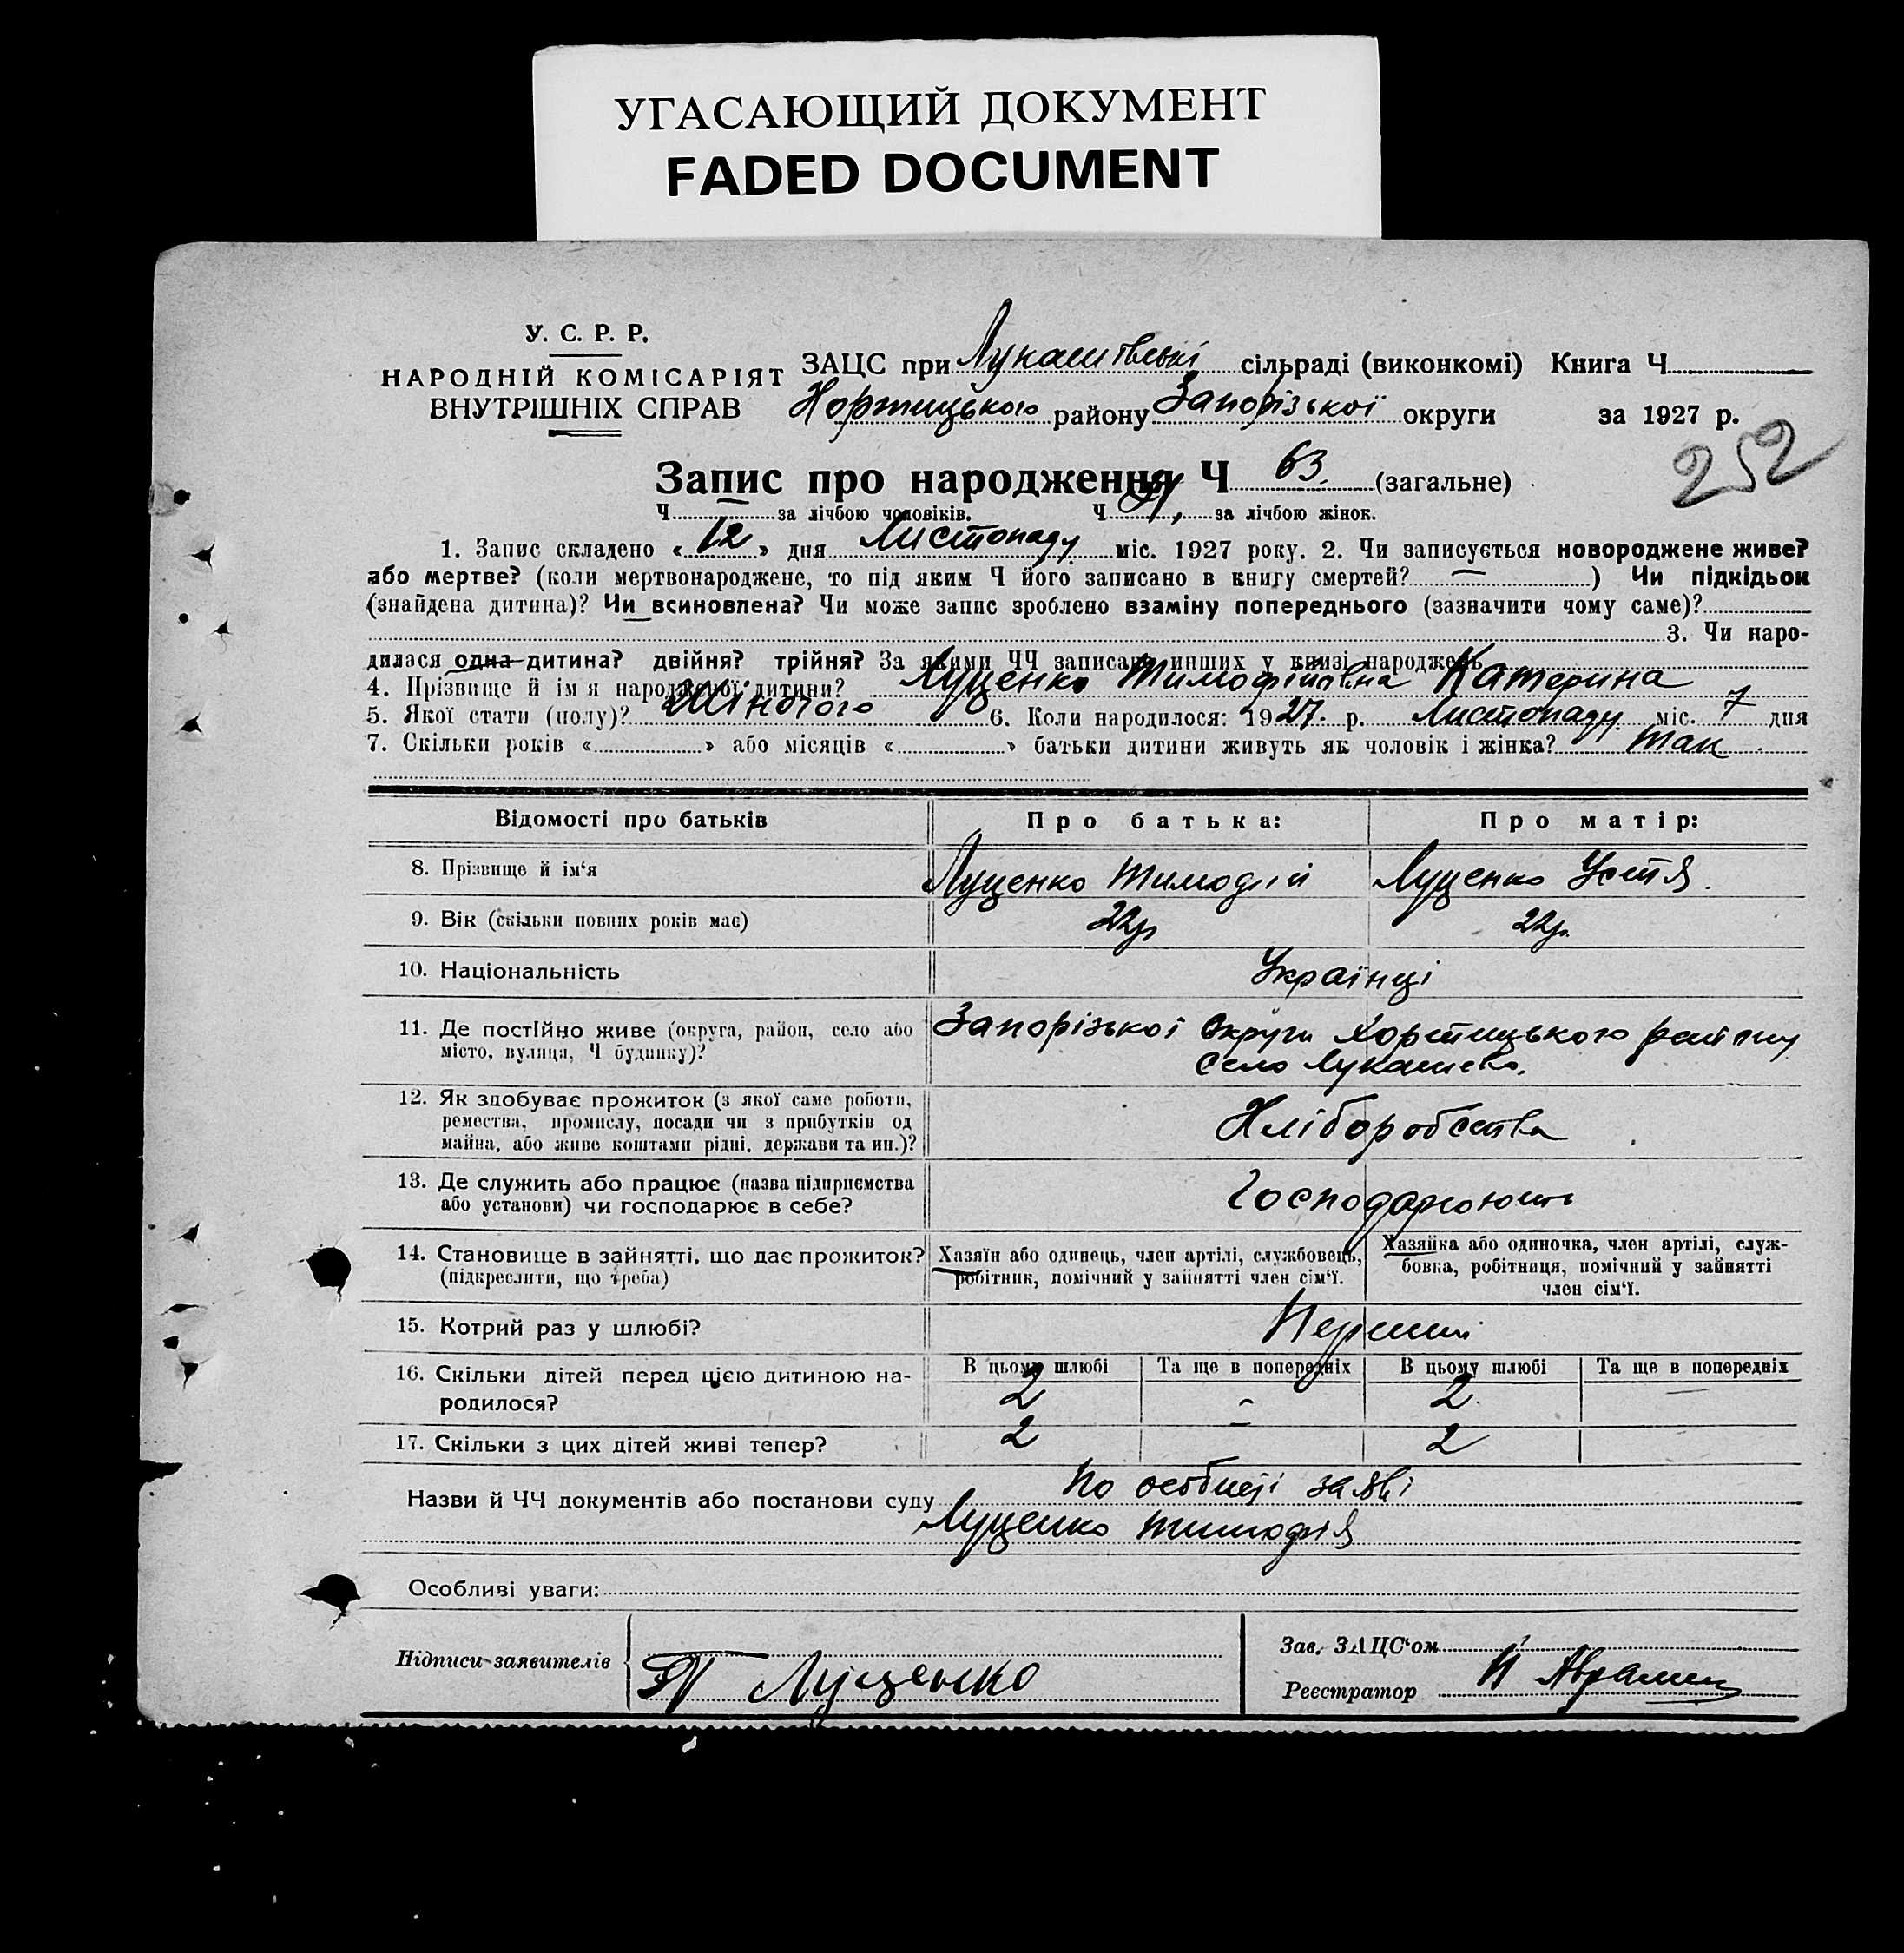 УГАСАЮЩИЙ ДОКУМЕНТ
FADED DOCUMENT
У. С. Р. Р.
НАРОДНІЙ КОМІСАРІЯТ
ВНУТРІШНІХ СПРАВ
ЗАЦС при Лукашівські сільраді (виконкомі) Книга Ч
Хортицького району Запорізької округи за 1927 р.
252
Запис про народження Ч 63. (загальне)
Ч — за лічбою чоловіків. Ч за лічбою жінок.
1. Запис складено «12» дня Листопаду міс. 1927 року. 2. Чи записується новороджене живе?
або мертве? (коли мертвонароджене, то під яким Ч його записано в книгу смертей? — ) Чи підкідьок
(знайдена дитина)? Чи всиновлена? Чи може запис зроблено взаміну попереднього (зазначити чому саме)?
3. Чи наро-
дилася одна дитина? двійня? трійня? За якими ЧЧ записано инших у книзі народжень
4. Прізвище й ім я народженої дитини? Луценко Тимофіївна Катерина
5. Якої стати (полу)? Жіночого 6. Коли народилося: 1927. р. Листопаду міс. 7 дня
7. Скільки років « » або місяців « » батьки дитини живуть як чоловік і жінка? так
Відомості про батьків Про батька: Про матір:
8. Прізвище й ім‘я Луценко Тимофій Луценко Устя.
9. Вік (скільки повних років має) 22р 22р.
10. Національність Українці
11. Де постійно живе (округа, район, село або Запорізької Округи Хортицького району
місто, вулиця, Ч будинку)? Село Лукашево.
12. Як здобуває прожиток (з якої саме роботи,
ремества, промислу, посади чи з прибутків од Хліборобства
майна, або живе коштами рідні, держави та ин.)?
13. Де служить або працює (назва підприємства Господарюють
або установи) чи господарює в себе?
14. Становище в зайнятті, що дає прожиток?
(підкреслити, що треба)
Хазяїн або одинець, член артілі, службовець,
робітник, помічний у зайнятті член сім‘ї.
Хазяйка або одиночка, член артілі, служ-
бовка, робітниця, помічний у зайнятті
член сім‘ї.
15. Котрий раз у шлюбі? Перший
16. Скільки дітей перед цією дитиною на-
родилося?
В цьому шлюбі Та ще в попередніх В цьому шлюбі Та ще в попередніх
2 - 2. —
17. Скільки з цих дітей живі тепер? 2 – 2
Назви й ЧЧ документів або постанови суду По особистій заяві
Луценко Тимофія
Особливі уваги:
Підписи заявителів Т Луценко
Зав. ЗАЦС‘ом
Реєстратор